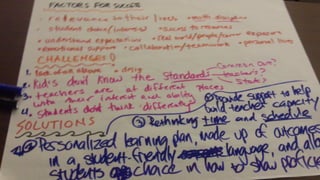 FACTORS FOR SUCCESS
• relevance to their lives • math discipline
• student choice (interests) • access to resources
• understand expectations • real world/profs/community experiences
• emotional support • collaboration/teamwork • personal lives
CHALLENGES
1. lack of
2. Kid's don't know the standards Common Core? teachers? State?
3. teachers are at different places with their interest and ability
4. Students don't think differently
② Provide support to help build teacher capacity
SOLUTIONS
③ Rethinking time and schedule
① Personalized learning plan, made up of outcomes
in a student-friendly language, and allow
students choice in how to show